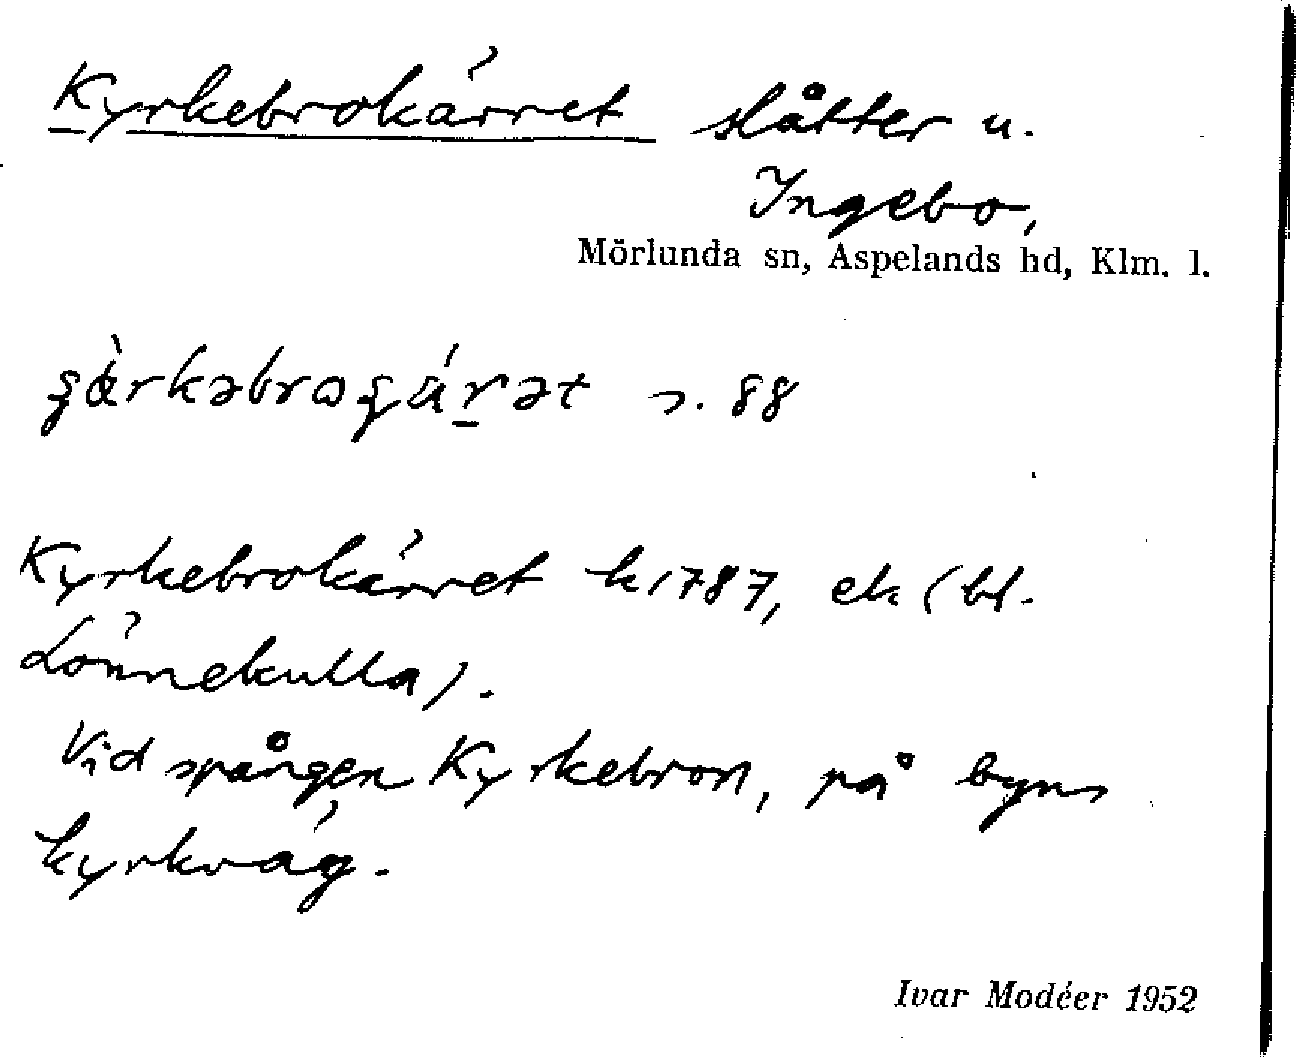 Kyrkebrokärret slåtter u.
Ingebo,
Mörlunda sn, Aspelands hd, Klm. l.
s. 88
Kyrkebrokärret k 1787, ek (bl.
Lönnekulla).
Vid spången Kyrkebron, på byns
kyrkväg.
Ivar Modéer 1952